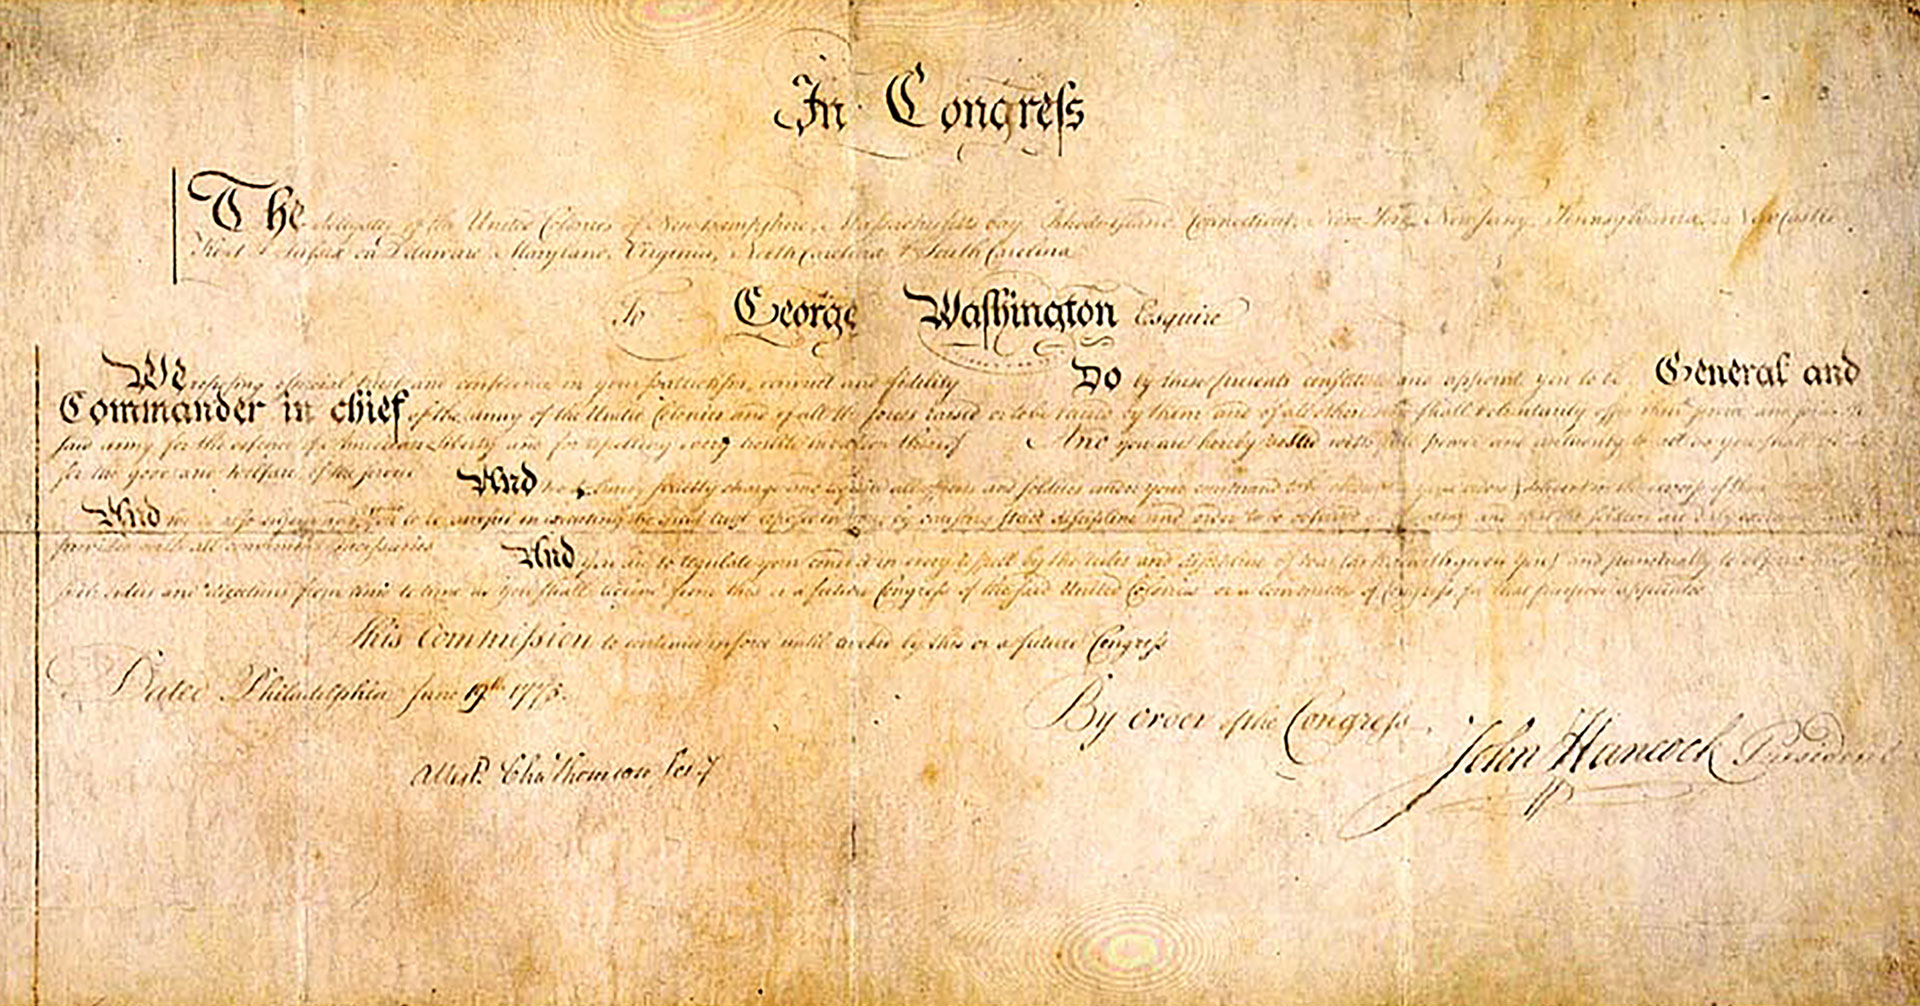 In Congress
The delegates of the United Colonies of New Hampshire, Massachusetts bay, Rhode Island, Connecticut, New York, New Jersey, Pennsylvania, New Castle
Kent & Sussex on Delaware, Maryland, Virginia, North Carolina & South Carolina
To George Washington Esquire
We reposing especial trust and confidence in your patriotism, conduct and fidelity Do by these presents constitute and appoint you to be General and
Commander in chief of the army of the United Colonies and of all the forces raised or to be raised by them and of all others who shall voluntarily offer their service and join the
said army for the defence of American Liberty and for repelling every hostile invasion thereof And you are hereby vested with full power and authority to act as you shall
for the good and welfare of the service
And we do hereby strictly charge and require all officers and soldiers under your command to be obedient to your orders & diligent in the exercise of their
And we do also enjoin and require you to be careful in executing the great trust reposed in you, by causing strict discipline and order to be observed in the army and that the soldiers are duly exercised
provided with all convenient necessaries
And you are to regulate your conduct in every respect by the rules and discipline of war (as herewith given you) and punctually to observe and
such orders and directions from time to time as you shall receive from this or a future Congress of the said United Colonies or a committee of Congress for that purpose appointed
This Commission to continue in force until revoked by this or a future Congress
Dated Philadelphia June 19th 1775.
By order of the Congress
John Hancock President
Attest. Cha Thomson Secy